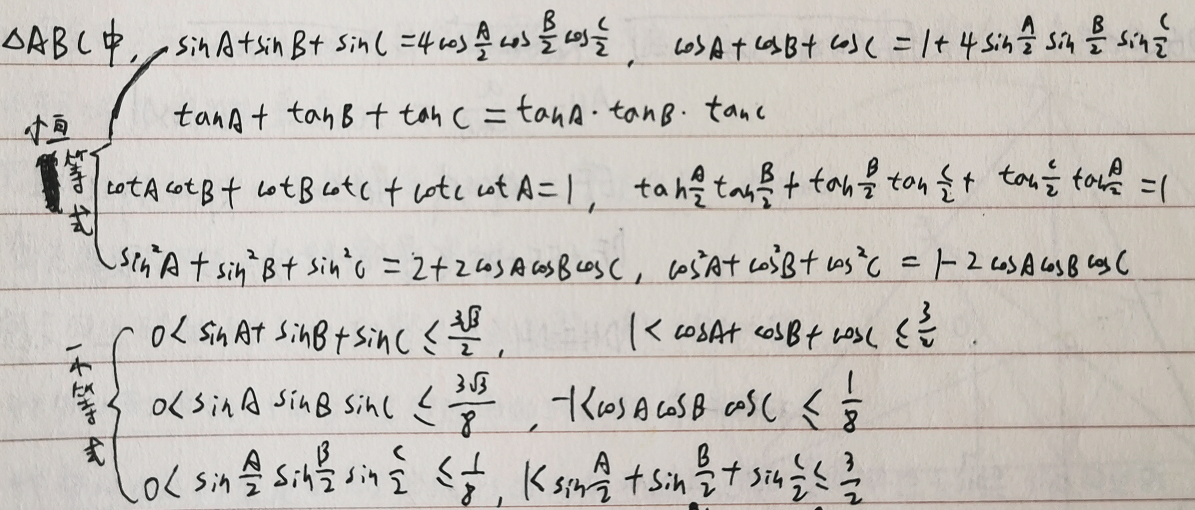 △ABC中, sinA+sinB+sinC=4cos\frac{A}{2}cos\frac{B}{2}cos\frac{C}{2}, cosA+cosB+cosC=1+4sin\frac{A}{2}sin\frac{B}{2}sin\frac{C}{2}
tanA+tanB+tanC=tanA·tanB·tanC
恒等式
cotAcotB+cotBcotC+cotCcotA=1, tan\frac{A}{2}tan\frac{B}{2}+tan\frac{B}{2}tan\frac{C}{2}+tan\frac{C}{2}tan\frac{A}{2}=1
sin²A+sin²B+sin²C=2+2cosAcosBcosC, cos²A+cos²B+cos²C=1-2cosAcosBcosC
0<sinA+sinB+sinC≤\frac{3\sqrt{3}}{2}, 1<cosA+cosB+cosC≤\frac{3}{2}
不等式
0<sinAsinBsinC≤\frac{3\sqrt{3}}{8}, -1<cosAcosBcosC≤\frac{1}{8}
0<sin\frac{A}{2}sin\frac{B}{2}sin\frac{C}{2}≤\frac{1}{8}, 1<sin\frac{A}{2}+sin\frac{B}{2}+sin\frac{C}{2}≤\frac{3}{2}